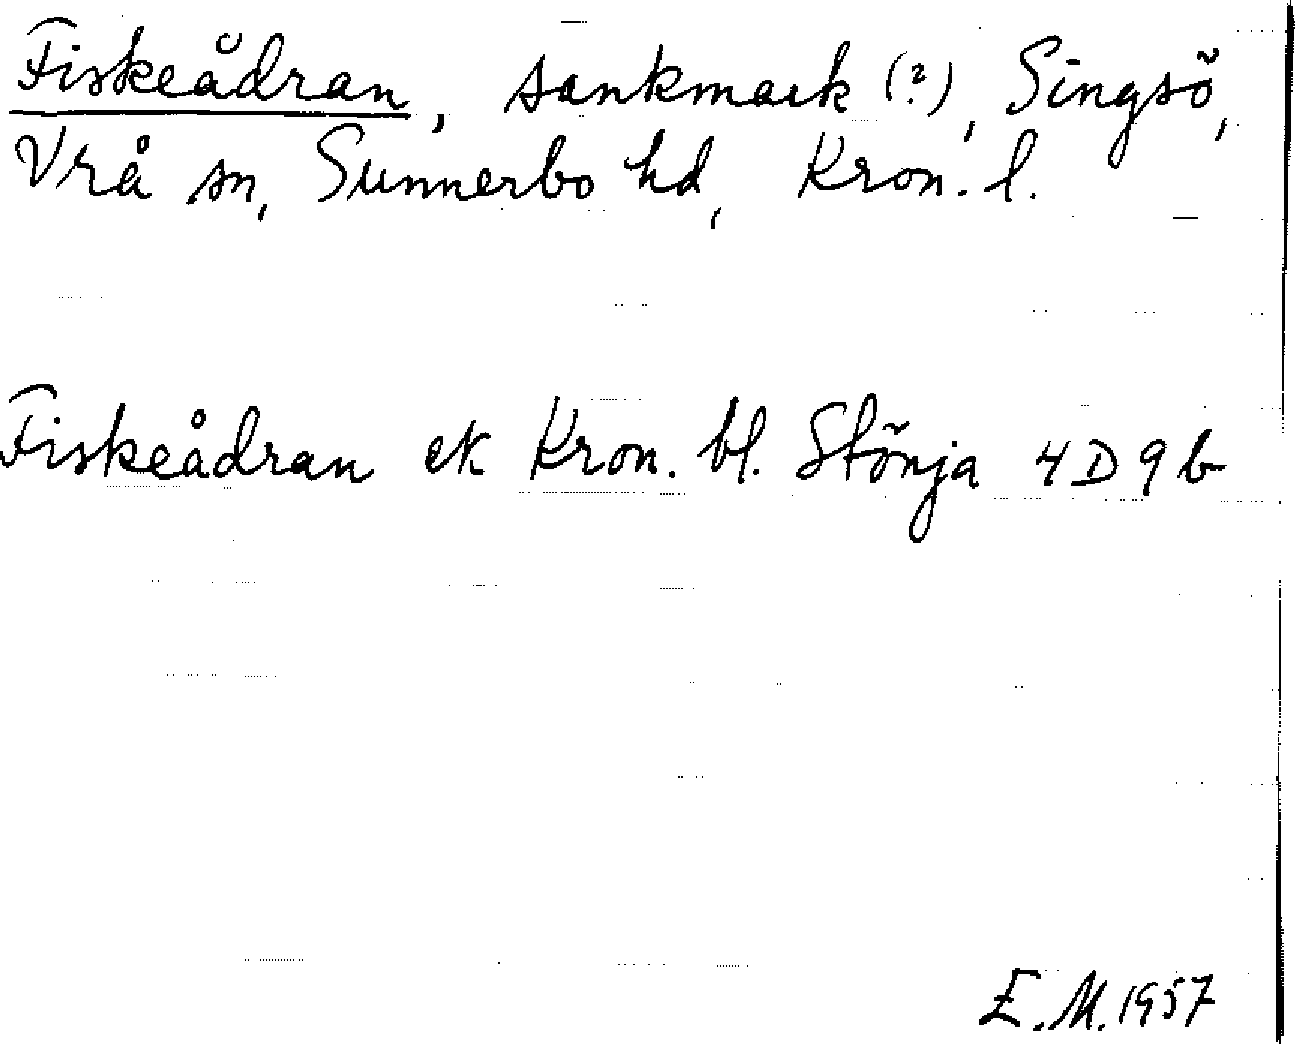 Fiskeådran, sankmark (?), Singsö,
Vrå sn, Sunnerbo hd, Kron. l.
Fiskeådran ek Kron. bl. Stönja 4D9b
E.M. 1957